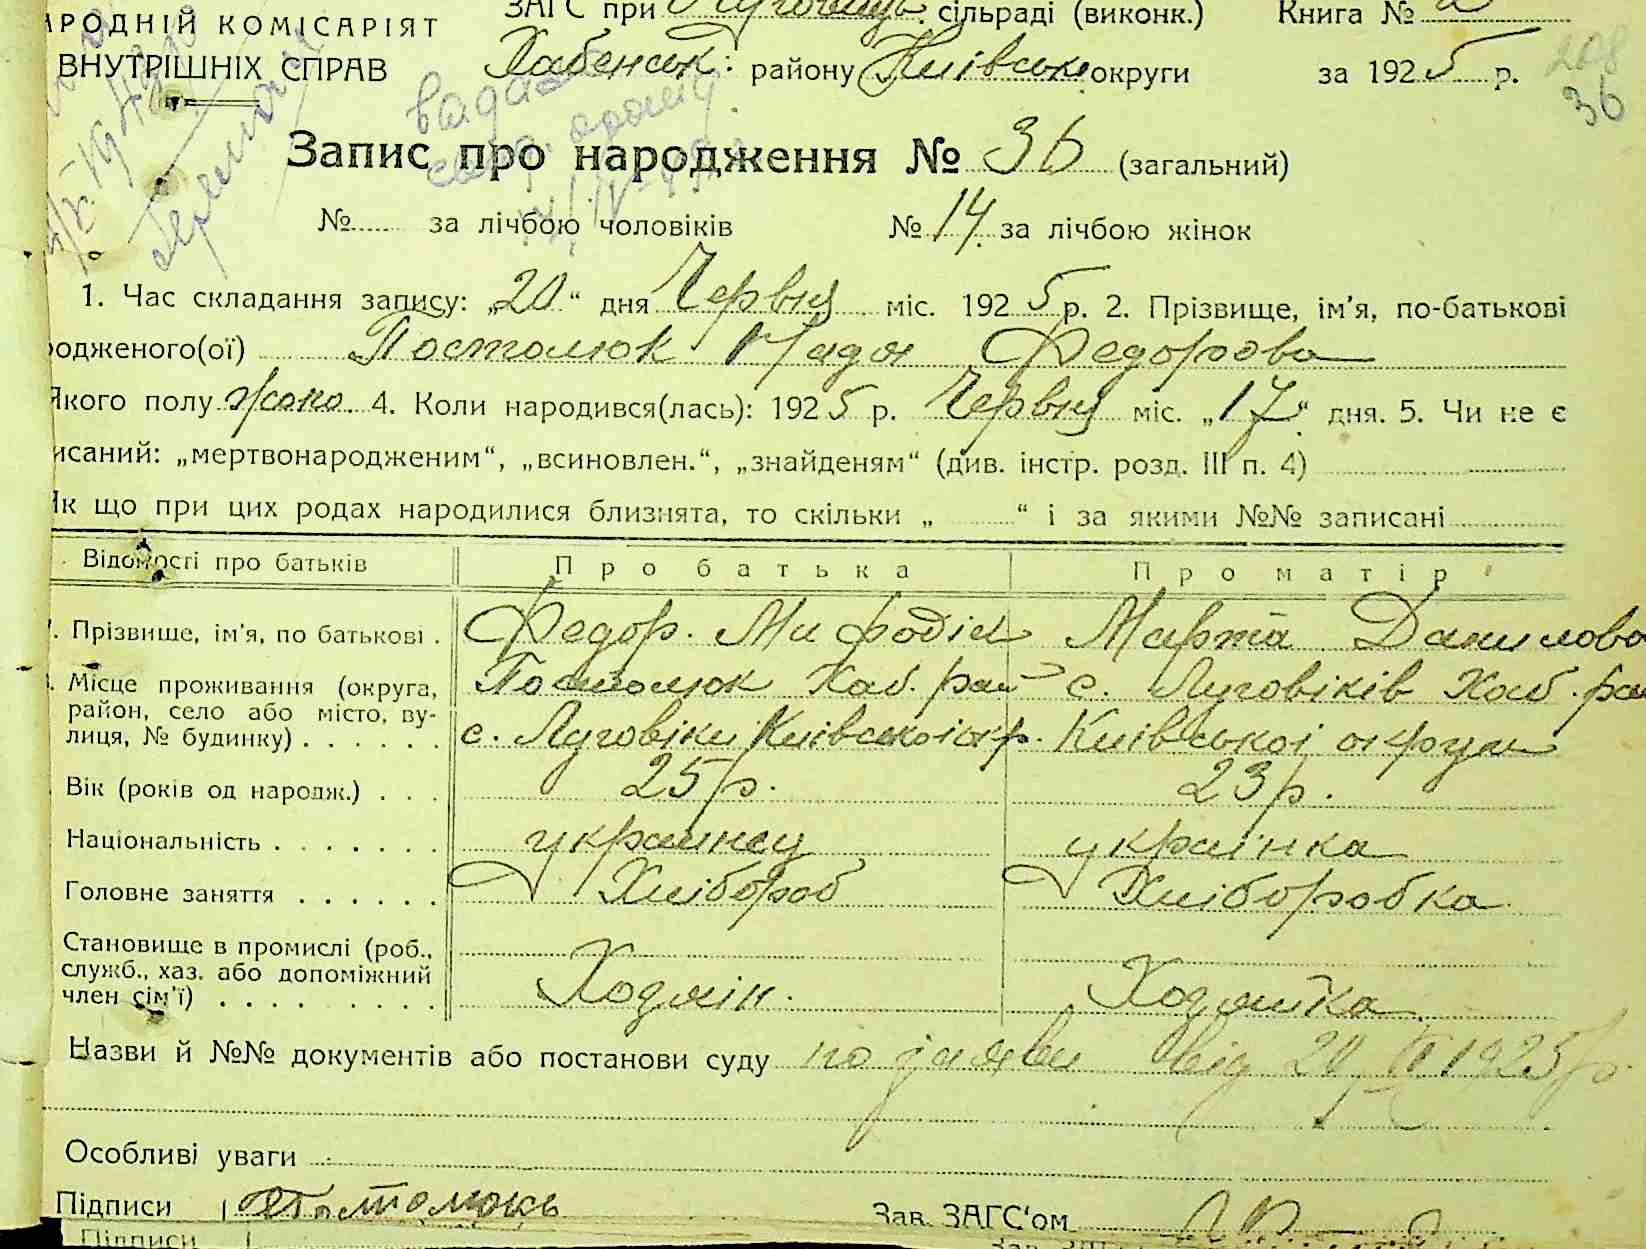 АРОДНІЙ КОМІСАРІЯТ
ВНУТРІШНІХ СПРАВ
ЗАГС при сільраді (виконк.) Книга №
Хабенськ: району Київськ округи за 1925 р.
208
36
видано
Запис про народження № 36 (загальний)
№ за лічбою чоловіків № 14 за лічбою жінок
1. Час складання запису: „20“ дня Червня міс. 1925 р. 2. Прізвище, ім'я, по-батькові
одженого(ої) Постолюк Надя Федорова
Якого полу жоно. 4. Коли народився(лась): 1925 р. Червня міс. „17“ дня. 5. Чи не є
исаний: „мертвонародженим“, „всиновлен.“, „знайденям“ (див. інстр. розд. III п. 4)
Як що при цих родах народилися близнята, то скільки „ “ і за якими №№ записані
Відомості про батьків Про батька Про матір
7. Прізвище, ім'я, по батькові . Федор. Мифоділ Марта Данилова
Місце проживання (округа, Постолюк Хаб. рай с. Луговіків Хаб. ра
район, село або місто, ву-
лиця, № будинку) . . . . . . с. Луговіки Київської окр. Київської округи
Вік (років од народж.) . . . 25 р. 23 р.
Національність . . . . . . . украинец украінка
Головне заняття . . . . . . Хлібороб Хліборобка
Становище в промислі (роб.,
служб., хаз. або допоміжний
член сім'ї) . . . . . . . . Хозяін. Хозяйка
Назви й №№ документів або постанови суду по заяви від 20/VI 1925 р.
Особливі уваги
Підписи Постолюкь Зав. ЗАГС'ом
Підписи